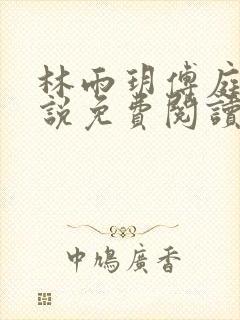 林雨玥傅庭
說免費閱讀
中鳩廣香